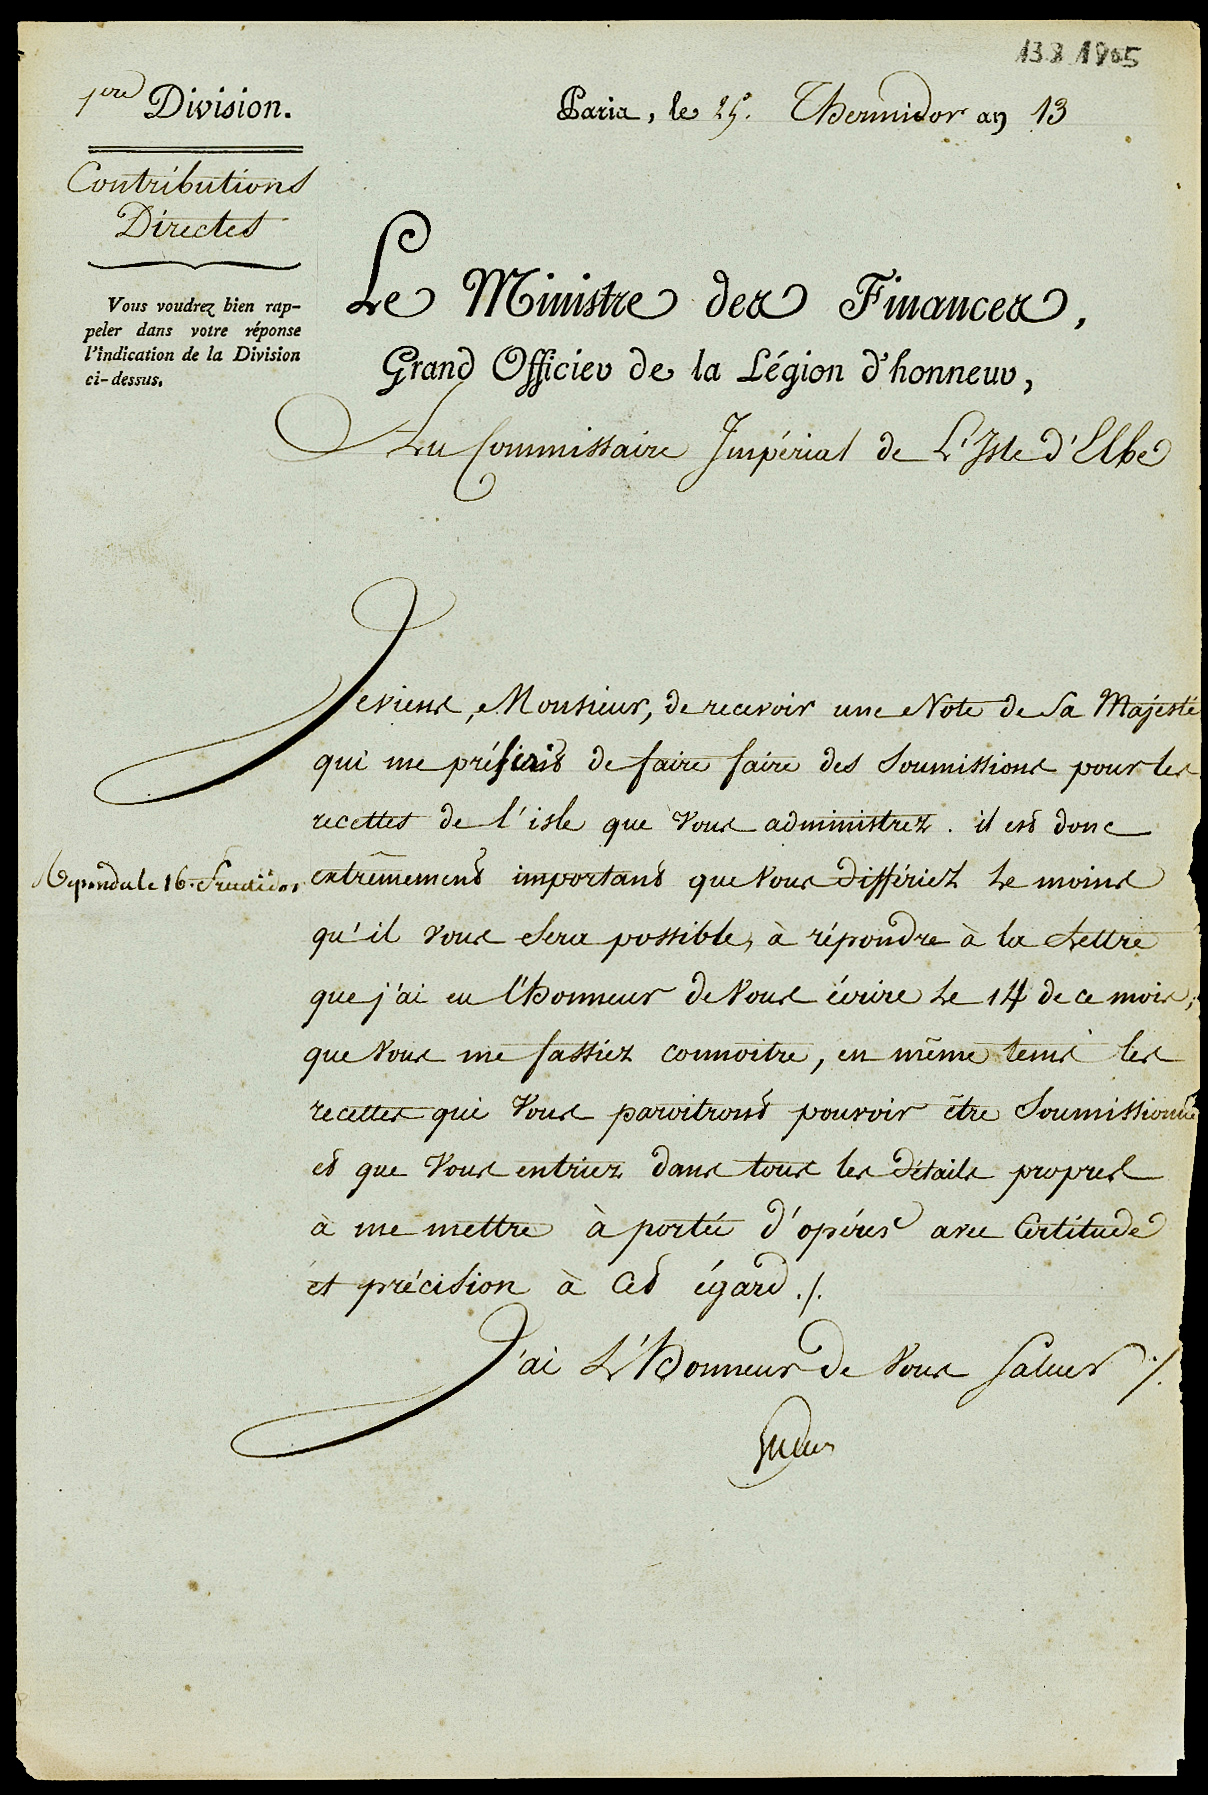 13 8 1805
1ere Division.
Paris, le 25. Thermidor an 13
Contributions
Directes
Vous voudrez bien rap-
peler dans votre réponse
l'indication de la Division
ci-dessus.
Le Ministre des Finances,
Grand Officier de la Légion d'honneur,
Au Commissaire Impérial de L'Isle d'Elbe
Je viens, Monsieur, de recevoir une Note de Sa Majesté
qui me préscrit de faire faire des Soumissions pour les
recettes de l'isle que Vous administrez. il est donc
Repondu le 16. Fructidor
extrêmement important que Vous différiez le moins
qu'il vous sera possible, à répondre à la Lettre
que j'ai eu l'Honneur de Vous écrire le 14 de ce mois,
que Vous me fassiez connoitre, en même tems les
recettes qui Vous paroitront pouvoir être Soumissionnées
et que Vous entriez dans tous les détails propres
à me mettre à portée d'opérer avec Certitude
et précision à Cet égard ./.
J'ai L'Honneur de Vous Saluer ./.
Gaudin